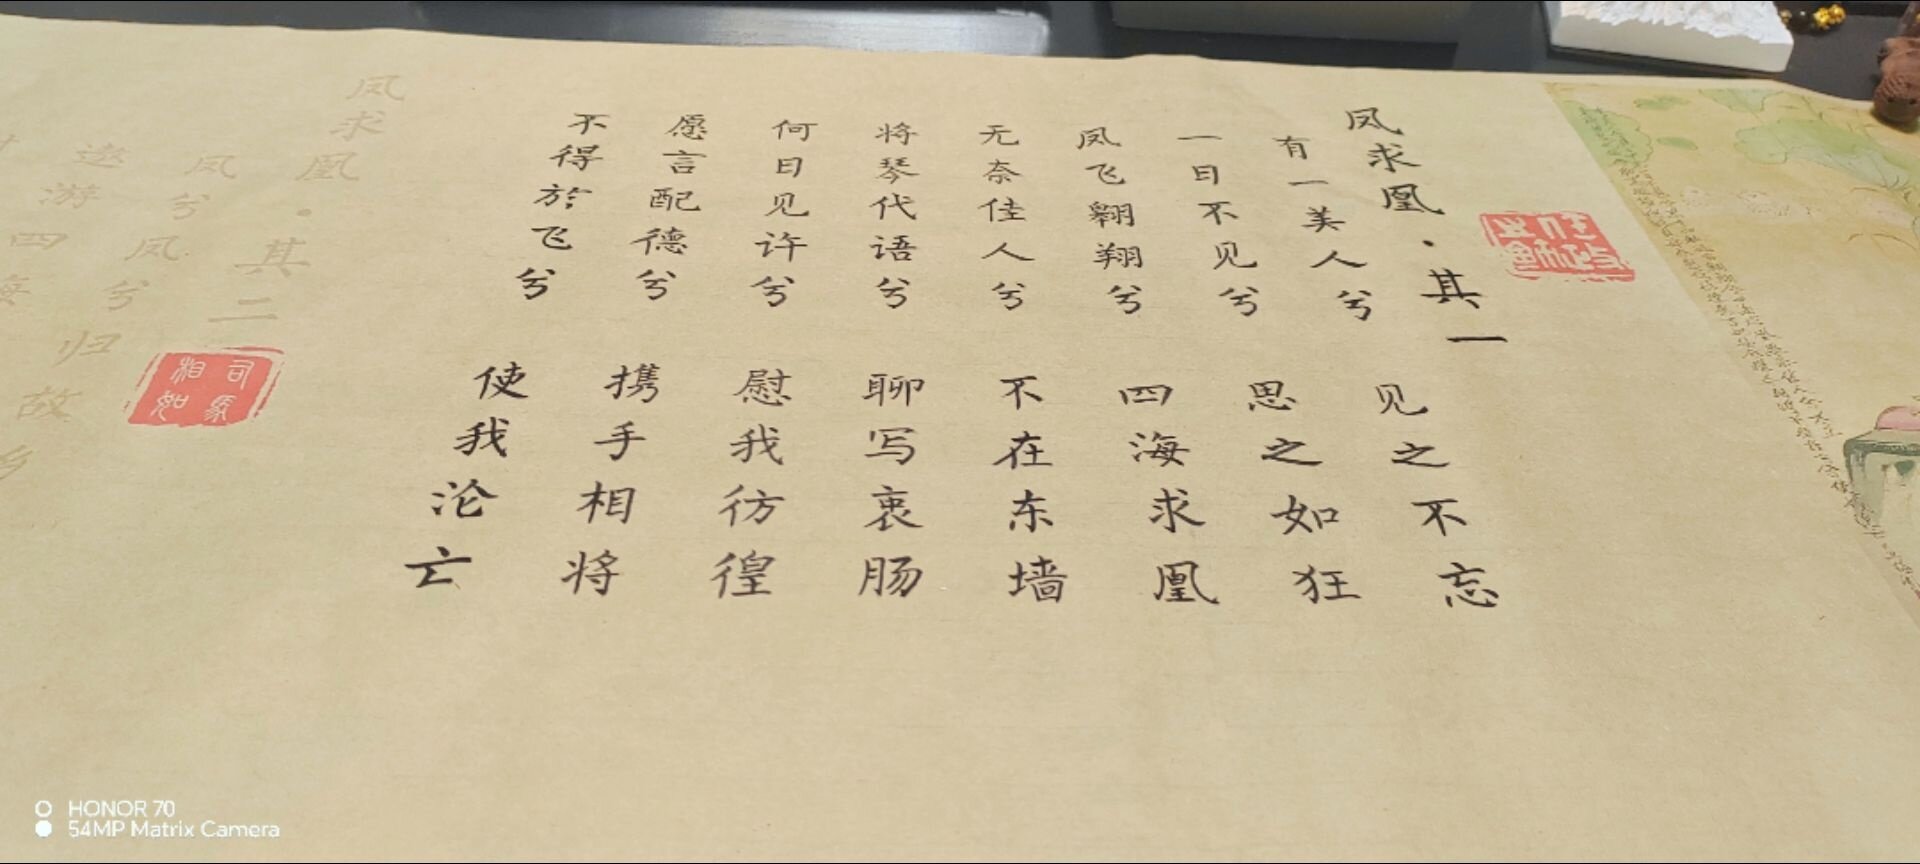 凤求凰·其一
有一美人兮
见之不忘
一日不见兮
思之如狂
凤飞翱翔兮
四海求凰
无奈佳人兮
不在东墙
将琴代语兮
聊写衷肠
何日见许兮
慰我彷徨
愿言配德兮
携手相将
不得於飞兮
使我沦亡
司马相如
凤求凰·其二
凤兮凤兮归故乡
遨游四海
HONOR 70
54MP Matrix Camera